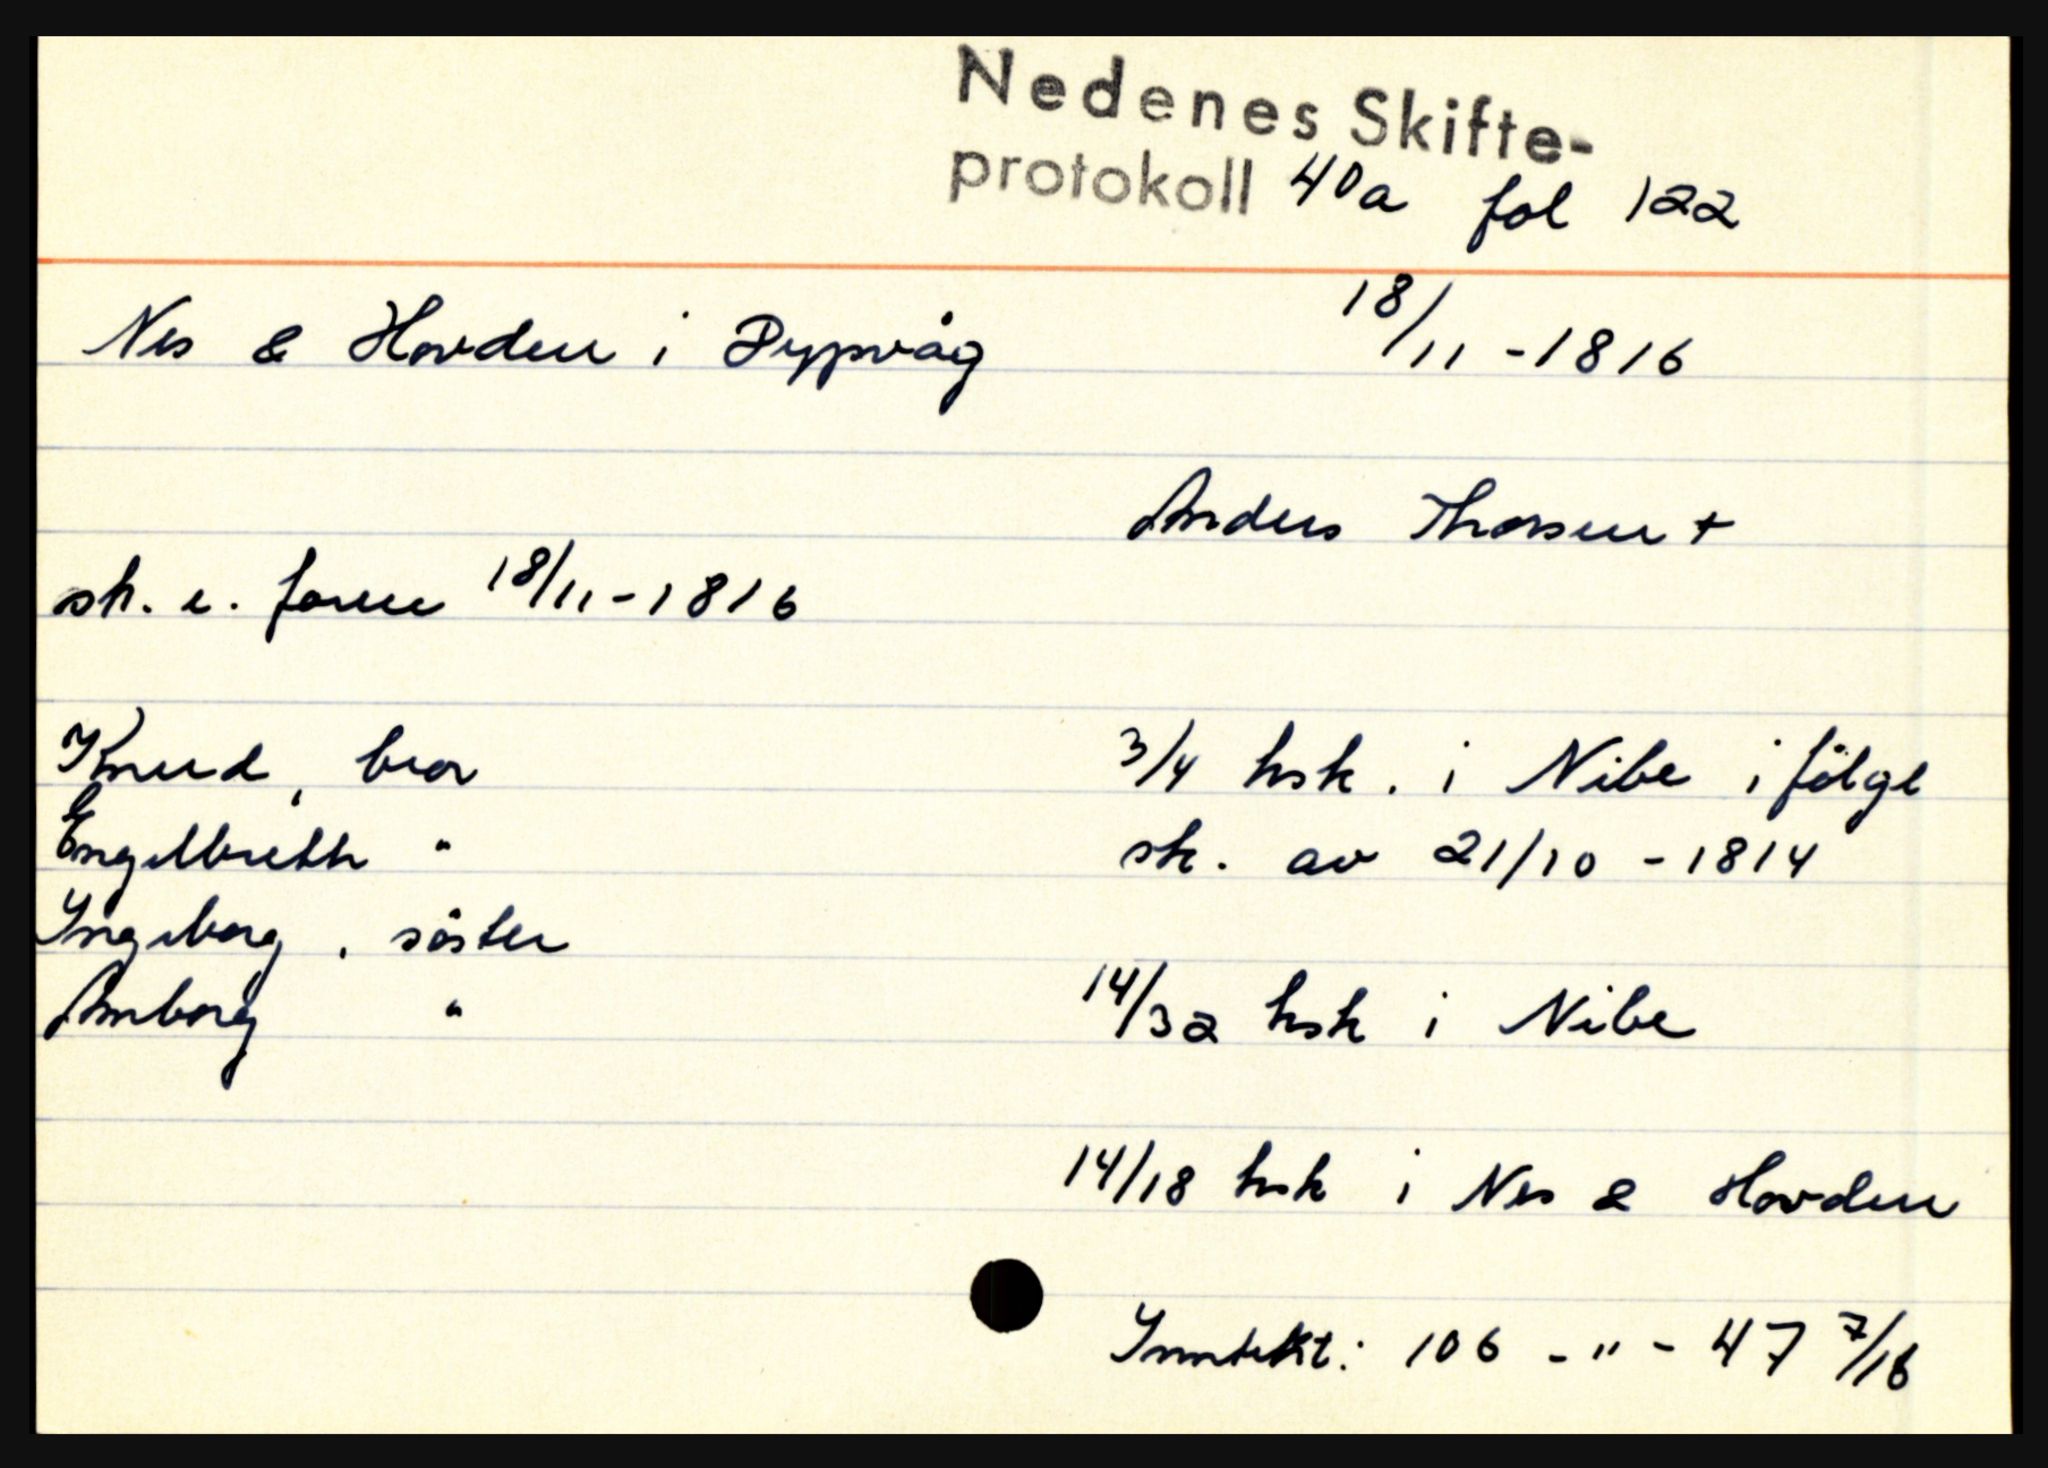 Nedenes Skifte-
protokoll 40a fol 122
Nes & Hovden i Dypvåg 18/11 - 1816
Anders Thorsen +
sk. e. forrn 18/11 - 1816
Knud, bror 3/4 hsk. i Nibe i følge
Engelbreth " sk. av 21/10 - 1814
Ingeborg, søster
Amborg " 14/32 hsk i Nibe
14/18 hsk i Nes & Hovden
Inntekt: 106 - " - 47 7/16